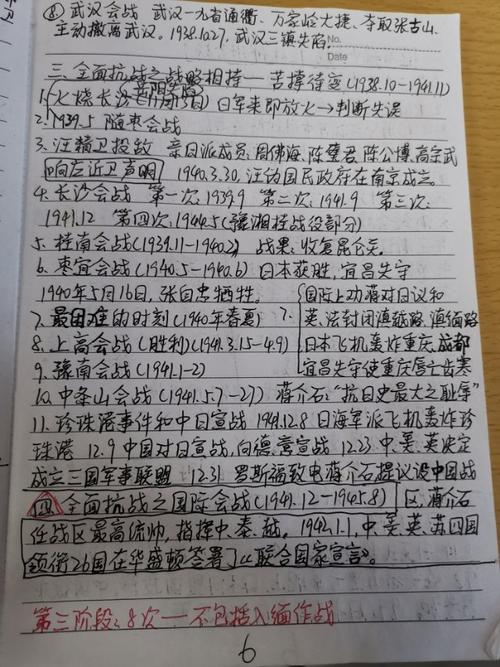 ⑧ 武汉会战 武汉一九省通衢、万家岭大捷、夺取张古山、
主动撤离武汉。1938.10.27. 武汉三镇失陷. No.
Date
三. 全面抗战之战略相持——苦撑待变(1938.10-1941.11)
岳阳失陷
1. 火烧长沙(11月13日) 日军来即放火→判断失误
2. 1939.5 随枣会战
3. 汪精卫投敌 亲日派成员: 周佛海、陈璧君、陈公博、高宗武
响应近卫声明 1940.3.30. 汪伪国民政府在南京成立.
4. 长沙会战 第一次: 1939.9 第二次: 1941.9 第三次:
1941.12 第四次: 1944.5(豫湘桂战役部分)
5. 桂南会战(1939.11-1940.2) 战果: 收复昆仑关.
6. 枣宜会战(1940.5-1940.6) 日本获胜, 宜昌失守
1940年5月16日, 张自忠牺牲。
7. 最困难的时刻(1940年春夏) 7.
国际上劝蒋对日议和
英、法封闭滇越路、滇缅路
日本飞机轰炸重庆、成都
宜昌失守使重庆唇亡齿寒
8. 上高会战(胜利)(1941.3.15-4.9)
9. 豫南会战(1941.1-2)
10. 中条山会战(1941.5.7-27) 蒋介石: "抗日史最大之耻辱"
11. 珍珠港事件和中日宣战 1941.12.8 日海军派飞机轰炸珍
珠港 12.9 中国对日宣战, 向德、意宣战 12.23 中、美、英决定
成立三国军事联盟 12.31 罗斯福致电蒋介石提议设中国战
四 全面抗战之国际会战(1941.12-1945.8) 区, 蒋介石
任战区最高统帅, 指挥中、泰、越。1942.1.1, 中、美、英、苏四国
领衔26国在华盛顿签署了《联合国家宣言》。
第三阶段: 8次一不包括入缅作战
6